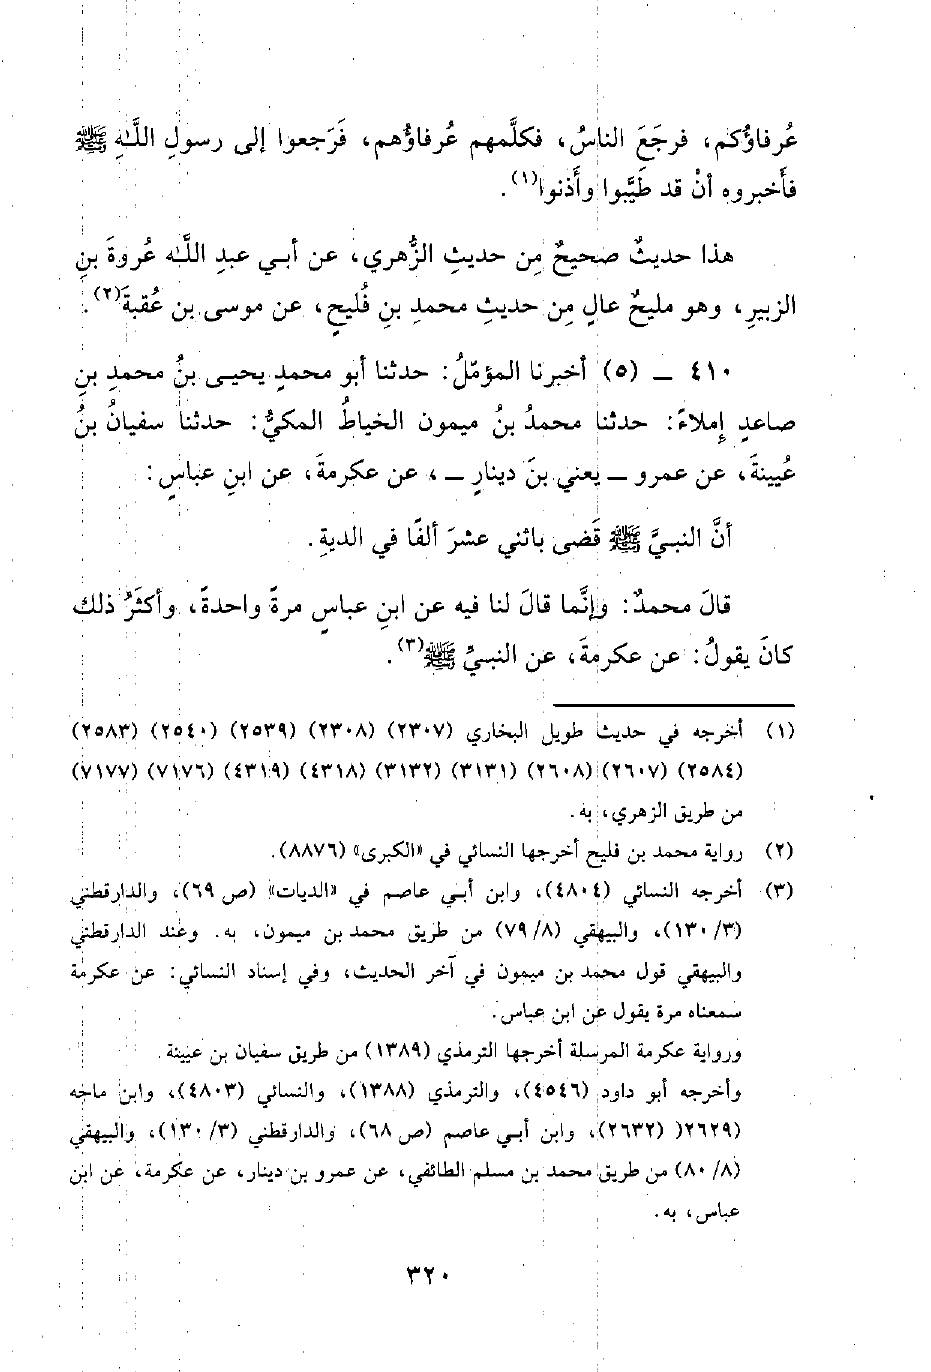 عُرفاؤُكم، فرجَعَ الناسُ، فكلَّمهم عُرفاؤُهم، فَرَجعوا إلى رسولِ اللَّهِ ﷺ
فأَخبروه أنْ قد طَيَّبوا وأَذنوا(١).
هذا حديثٌ صحيحٌ مِن حديثِ الزُّهري، عن أبي عبدِ اللَّه عُروةَ بنِ
الزبيرِ، وهو مليحٌ عالٍ مِن حديثِ محمدِ بنِ فُليحٍ، عن موسى بن عُقبةَ(٢).
٤١٠ ــ (٥) أخبرنا المؤمّلُ: حدثنا أبو محمدٍ يحيى بنُ محمدِ بنِ
صاعدٍ إملاءً: حدثنا محمدُ بنُ ميمون الخياطُ المكيُّ: حدثنا سفيانُ بنُ
عُيينةَ، عن عمرو ــ يعني بنَ دينارٍ ــ، عن عكرمةَ، عن ابنِ عباسٍ:
أنَّ النبيَّ ﷺ قَضى باثني عشرَ ألفًا في الديةِ.
قالَ محمدٌ: وإنَّما قالَ لنا فيه عن ابنِ عباسٍ مرةً واحدةً، وأكثَرُ ذلك
كانَ يقولُ: عن عكرمةَ، عن النبيِّ ﷺ(٣).
(١) أخرجه في حديث طويل البخاري (٢٣٠٧) (٢٣٠٨) (٢٥٣٩) (٢٥٤٠) (٢٥٨٣)
(٢٥٨٤) (٢٦٠٧) (٢٦٠٨) (٣١٣١) (٣١٣٢) (٤٣١٨) (٤٣١٩) (٧١٧٦) (٧١٧٧)
من طريق الزهري، به.
(٢) رواية محمد بن فليح أخرجها النسائي في «الكبرى» (٨٨٧٦).
(٣) أخرجه النسائي (٤٨٠٤)، وابن أبي عاصم في «الديات» (ص ٦٩)، والدارقطني
(٣/ ١٣٠)، والبيهقي (٨/ ٧٩) من طريق محمد بن ميمون، به. وعند الدارقطني
والبيهقي قول محمد بن ميمون في آخر الحديث، وفي إسناد النسائي: عن عكرمة
سمعناه مرة يقول عن ابن عباس.
ورواية عكرمة المرسلة أخرجها الترمذي (١٣٨٩) من طريق سفيان بن عيينة.
وأخرجه أبو داود (٤٥٤٦)، والترمذي (١٣٨٨)، والنسائي (٤٨٠٣)، وابن ماجه
(٢٦٢٩( (٢٦٣٢)، وابن أبي عاصم (ص ٦٨)، والدارقطني (٣/ ١٣٠)، والبيهقي
(٨/ ٨٠) من طريق محمد بن مسلم الطائفي، عن عمرو بن دينار، عن عكرمة، عن ابن
عباس، به.
٣٢٠